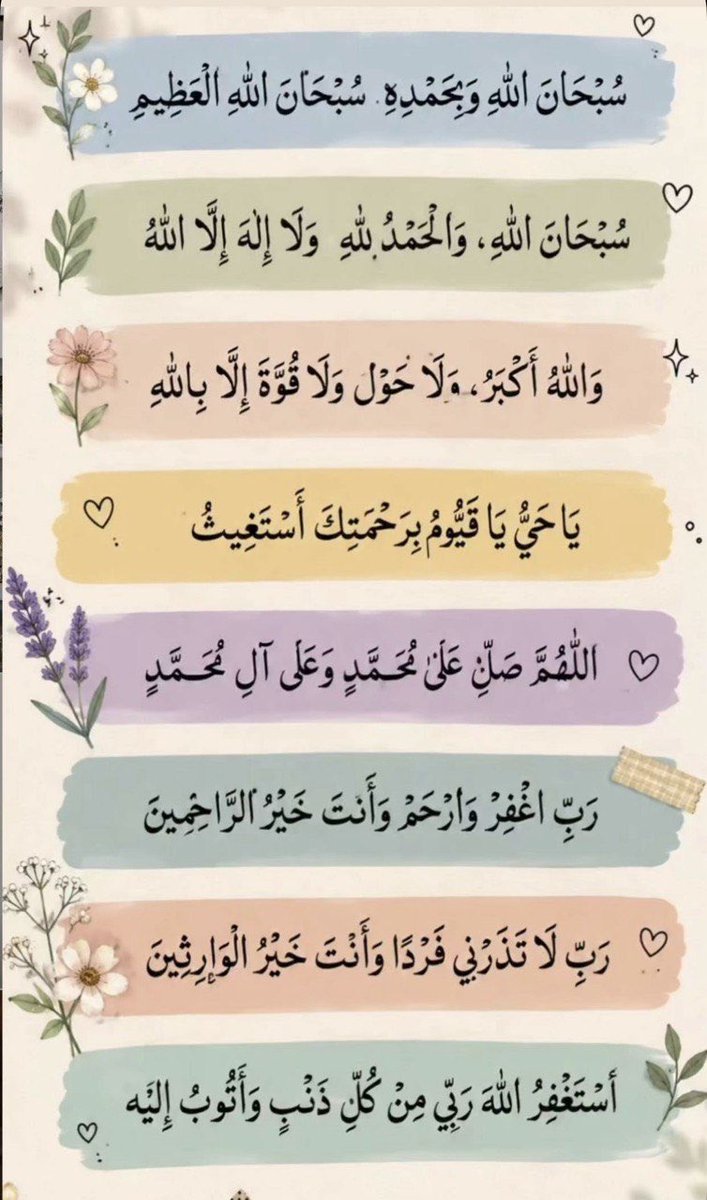 سُبْحَانَ اللهِ وَبِحَمْدِهِ سُبْحَانَ اللهِ الْعَظِيمِ
سُبْحَانَ اللهِ، وَالْحَمْدُ لِلهِ وَلَا إِلٰهَ إِلَّا اللهُ
وَاللهُ أَكْبَرُ، وَلَا حَوْل وَلَا قُوَّةَ إِلَّا بِاللهِ
يَا حَيُّ يَا قَيُّومُ بِرَحْمَتِكَ أَسْتَغِيثُ
اللّٰهُمَّ صَلِّ عَلَىٰ مُحَمَّدٍ وَعَلَى آلِ مُحَمَّدٍ
رَبِّ اغْفِرْ وَارْحَمْ وَأَنتَ خَيْرُ الرَّاحِمِينَ
رَبِّ لَا تَذَرْنِي فَرْدًا وَأَنْتَ خَيْرُ الْوَارِثِينَ
أسْتَغْفِرُ اللهَ رَبِّي مِنْ كُلِّ ذَنْبٍ وَأَتُوبُ إِلَيْه